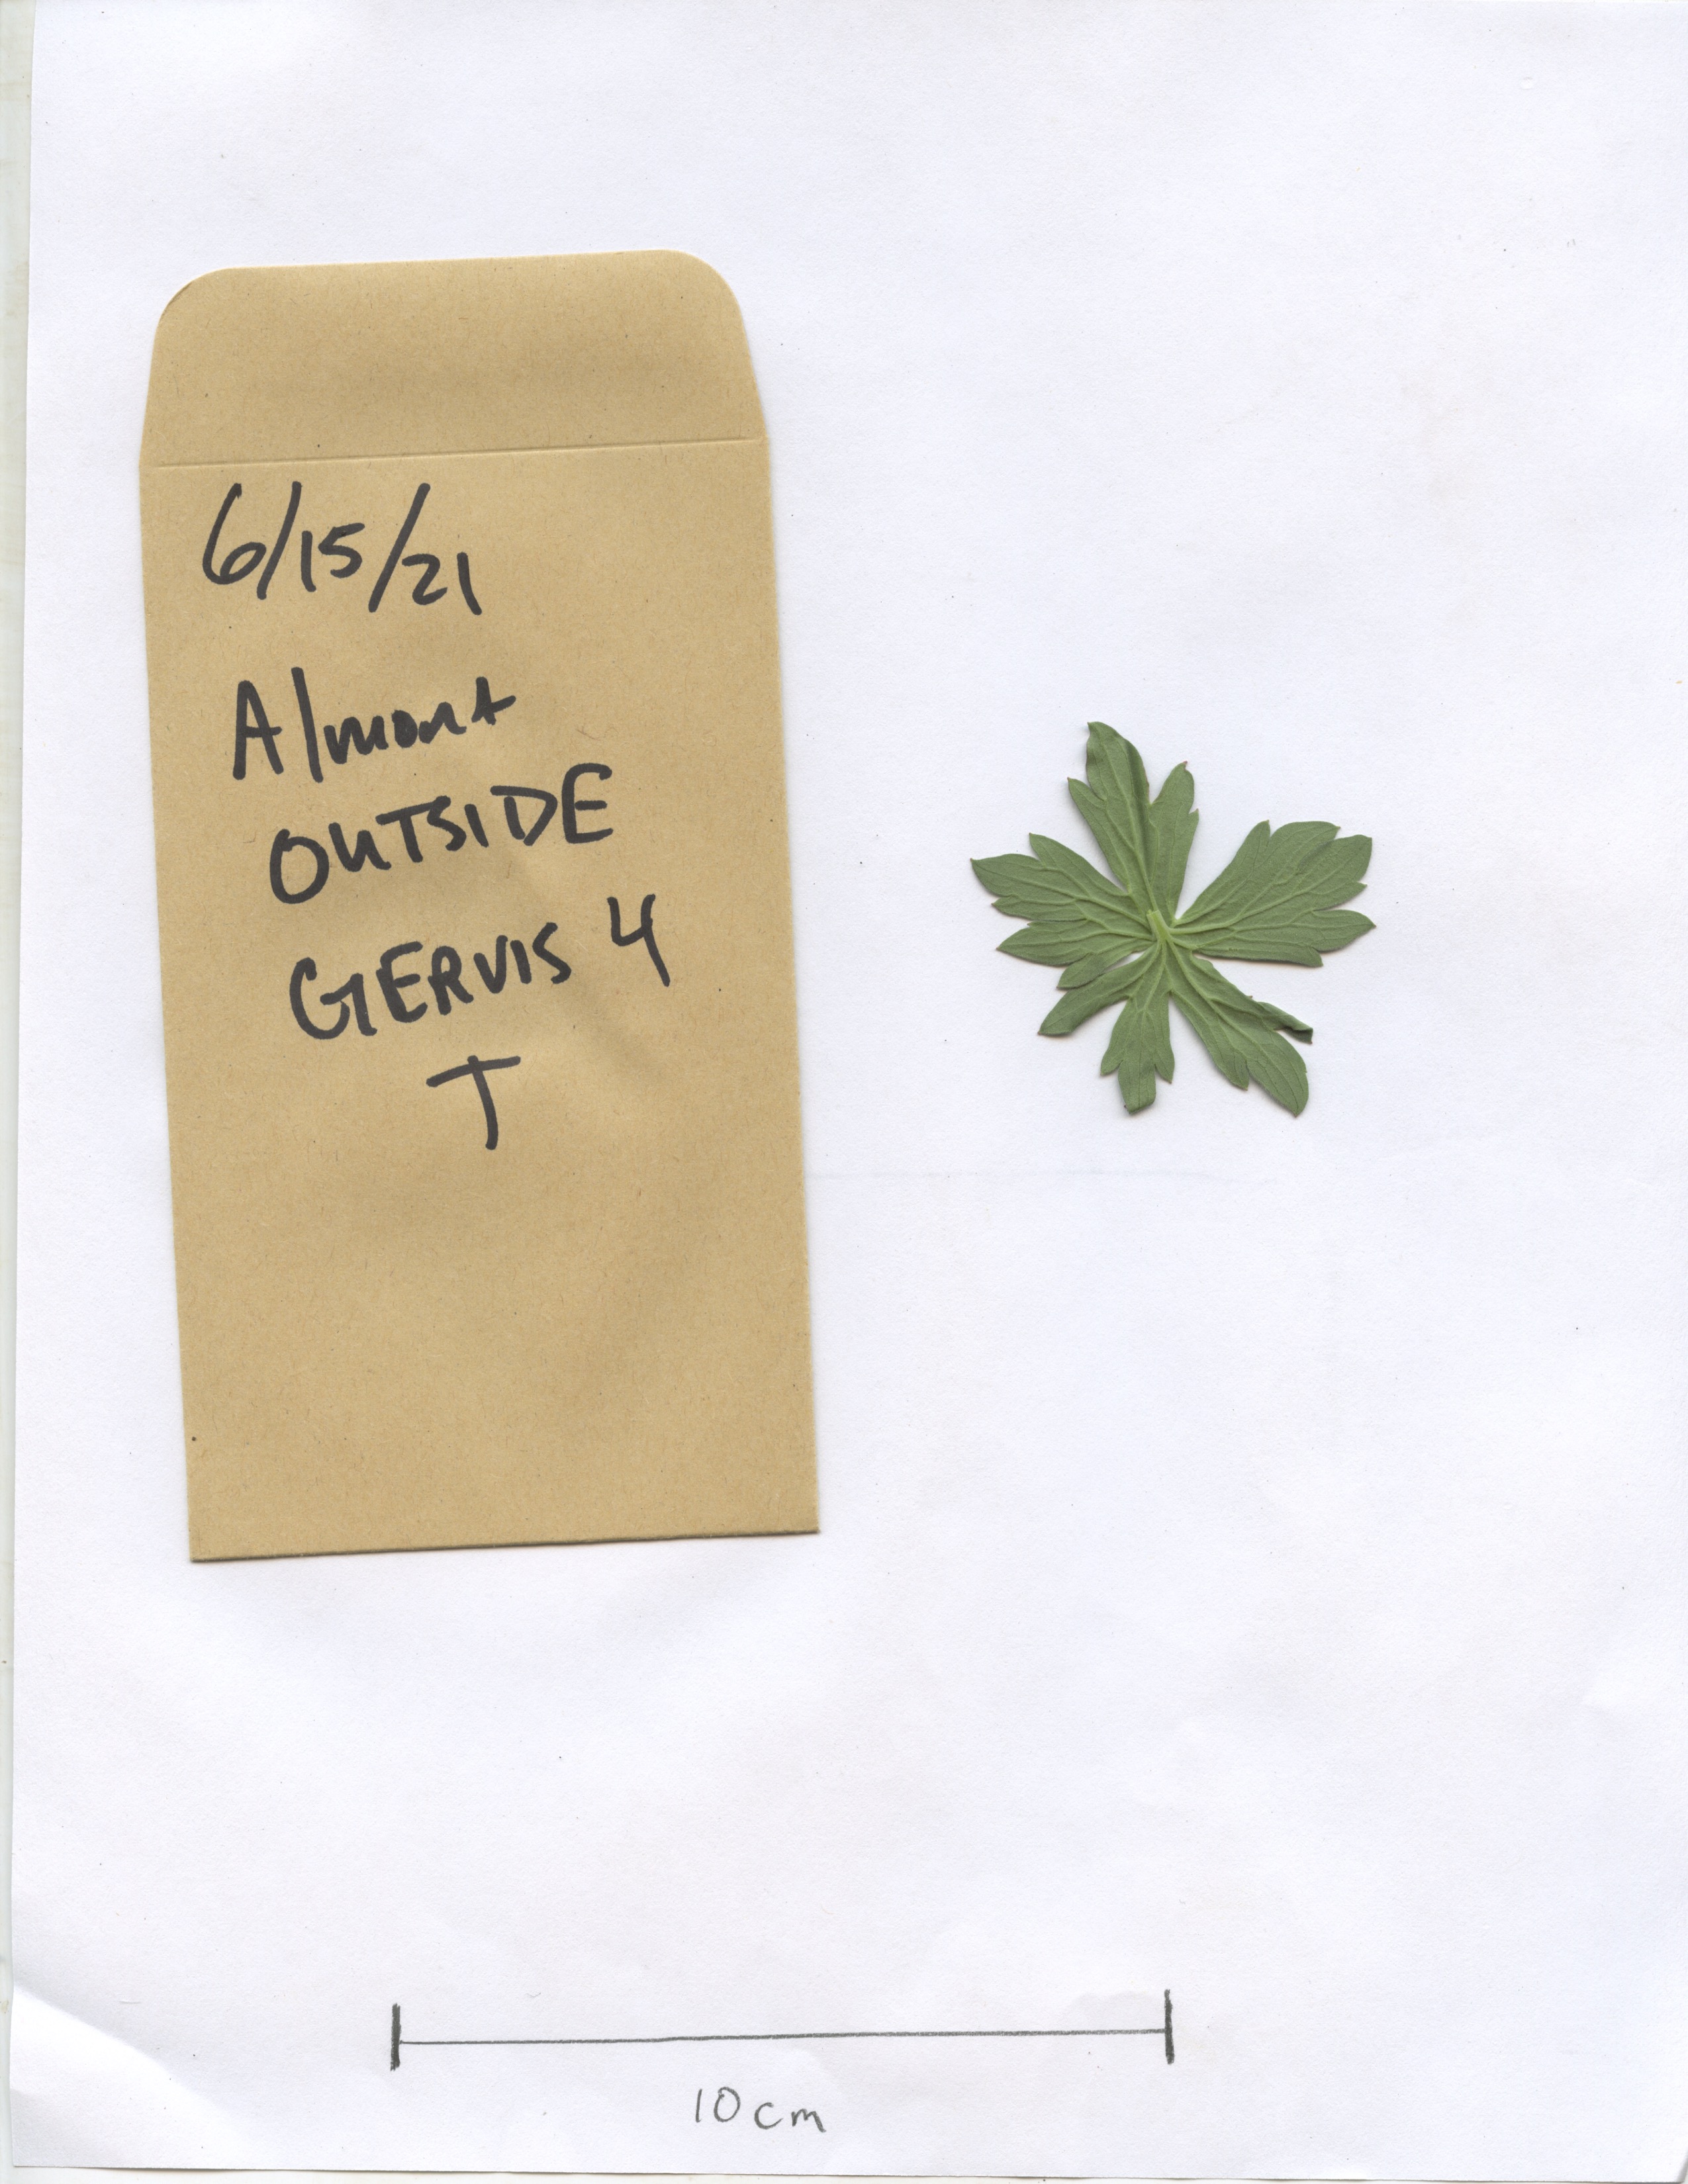 6/15/21
Almont
OUTSIDE
GERVIS 4
T
10cm